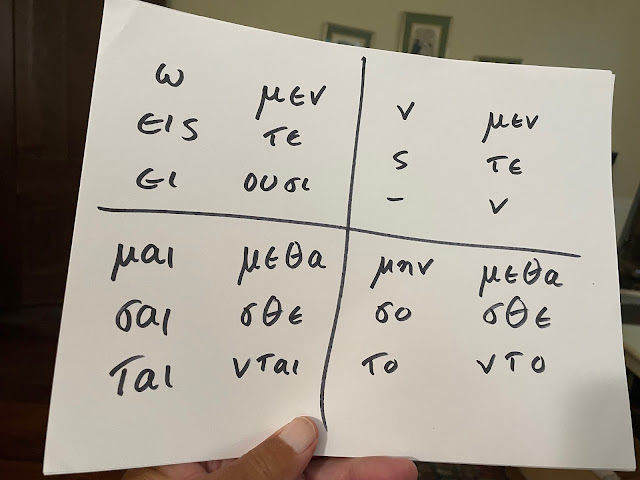 ω μεν
εις τε
ει ουσι
ν μεν
ς τε
– ν
μαι μεθα
σαι σθε
ται νται
μην μεθα
σο σθε
το ντο